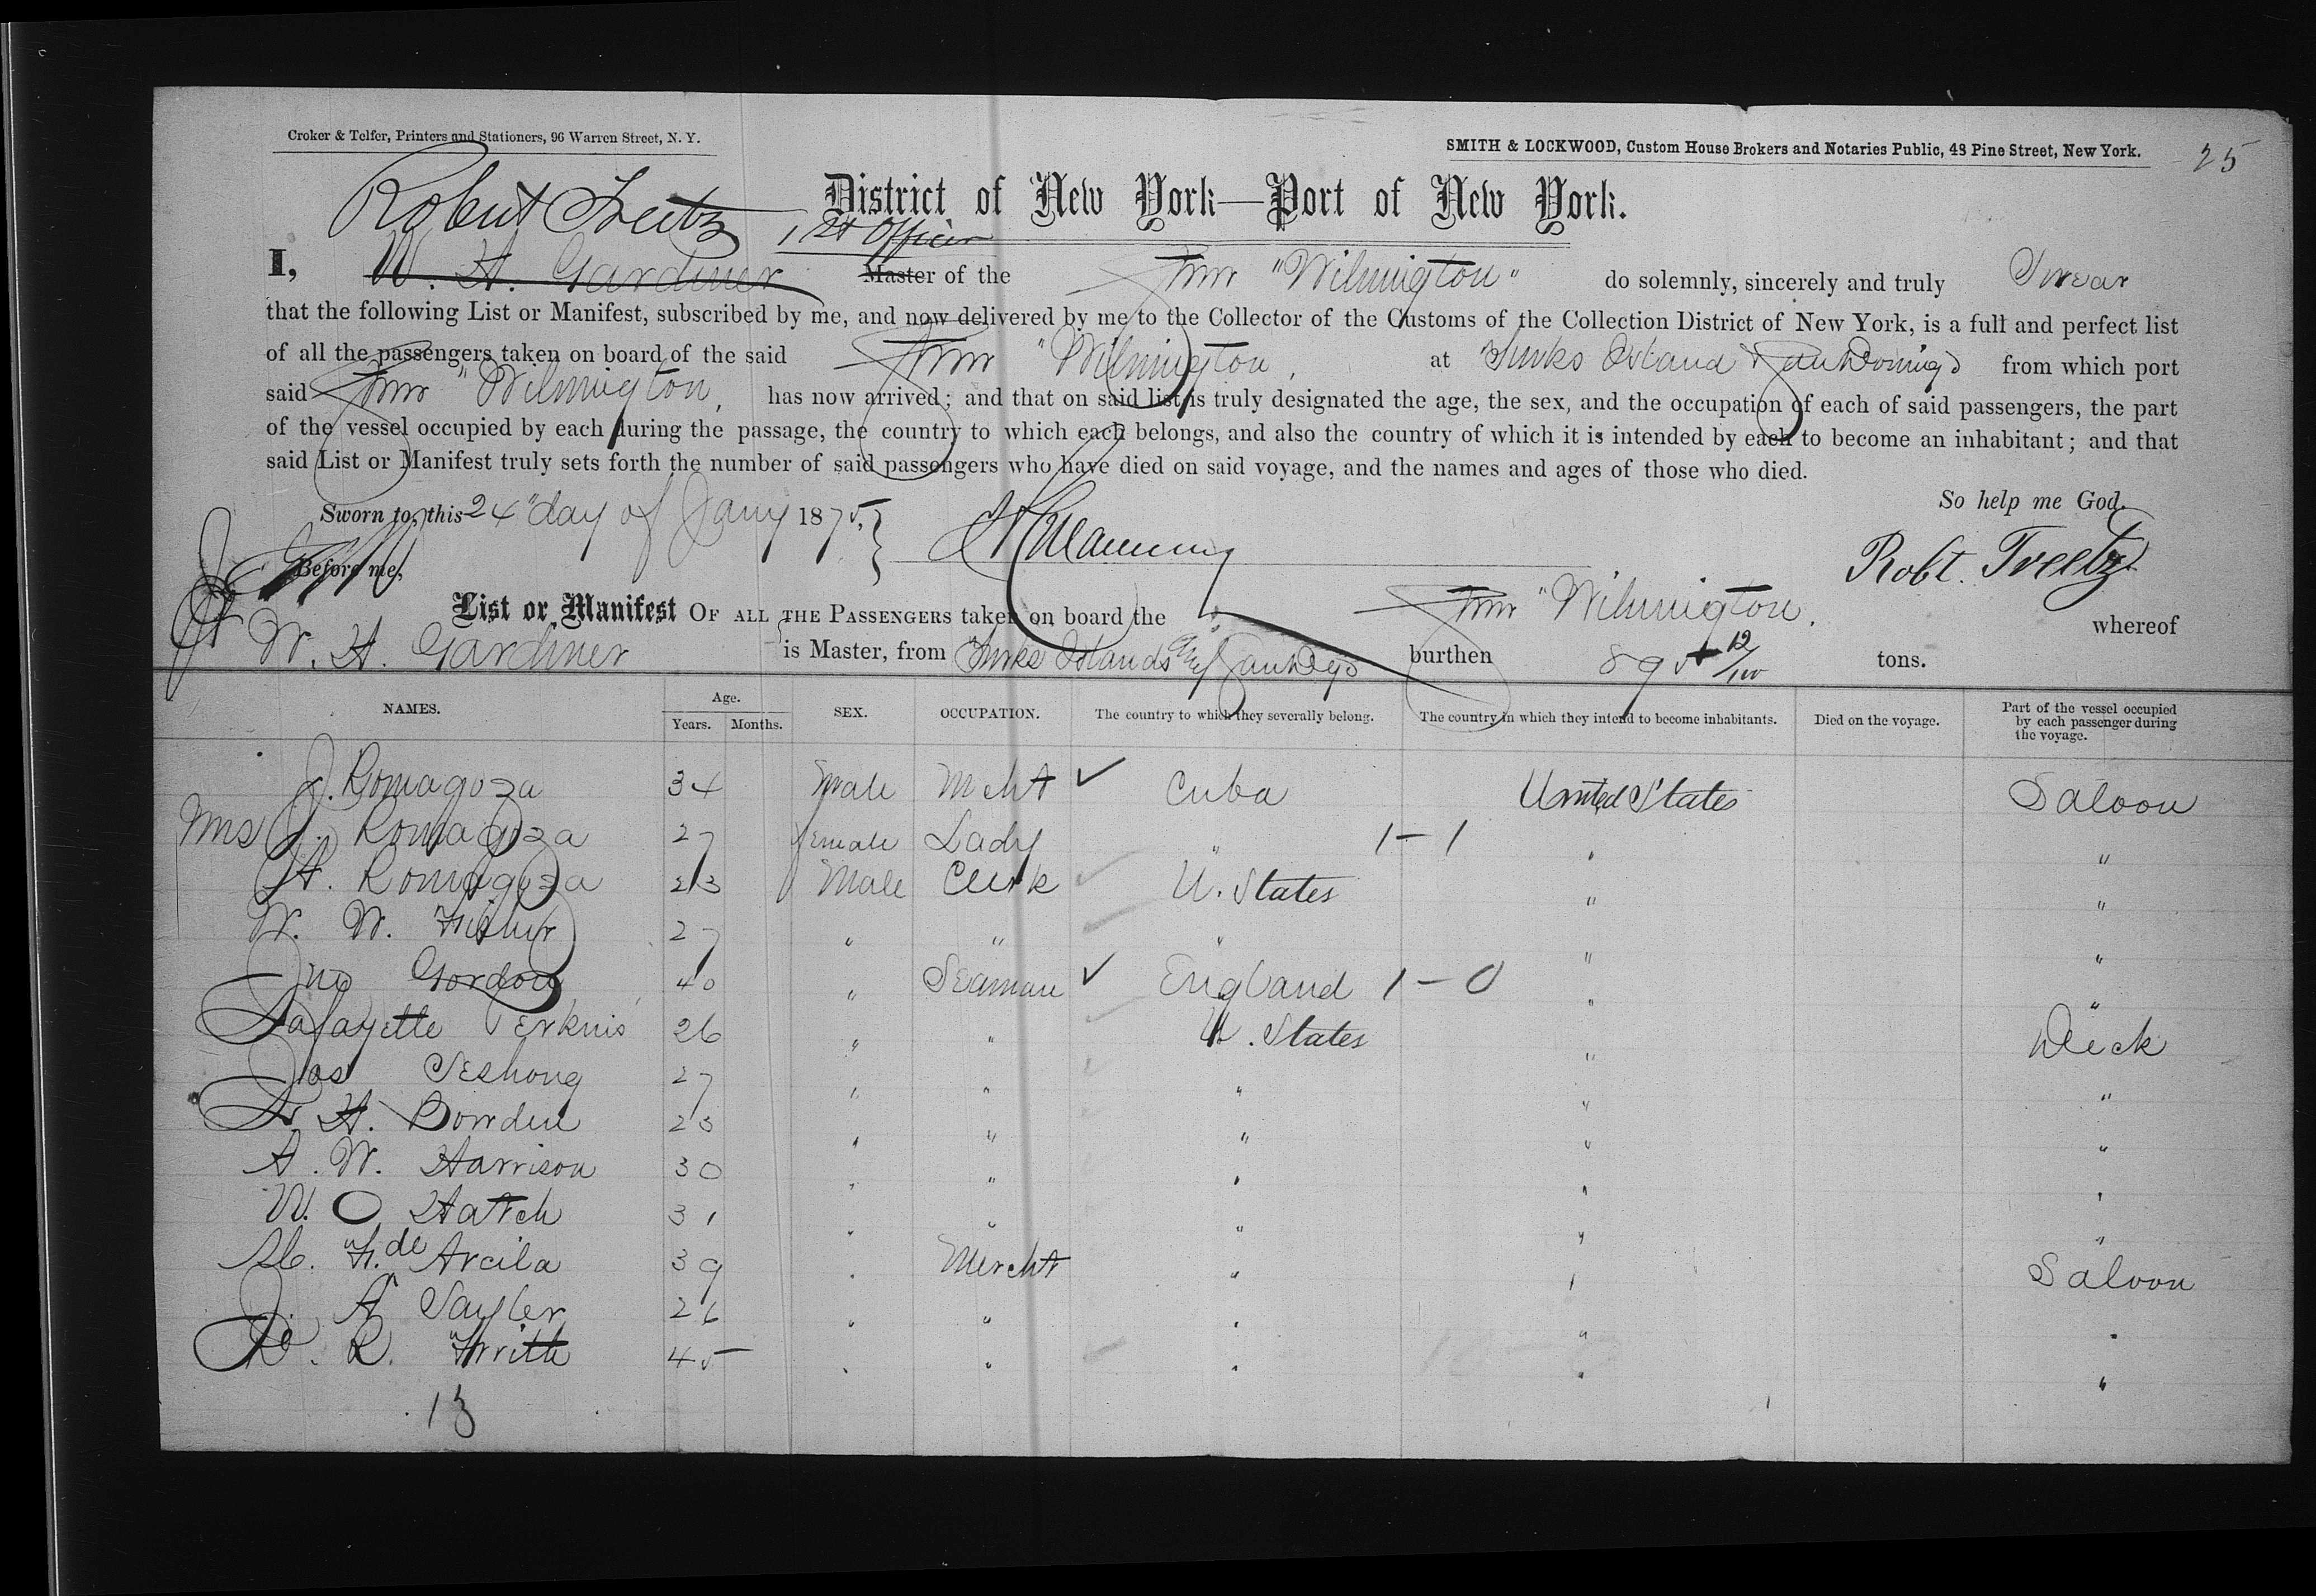 Croker & Telfer, Printers and Stationers, 96 Warren Street, N. Y.
SMITH & LOCKWOOD, Custom House Brokers and Notaries Public, 43 Pine Street, New York.
25
District of New York—Port of New York.
Robert Treetz 1st Officer
I, W. H. Gardiner Master of the Stmr "Wilmington" do solemnly, sincerely and truly Swear
that the following List or Manifest, subscribed by me, and now delivered by me to the Collector of the Customs of the Collection District of New York, is a full and perfect list
of all the passengers taken on board of the said Stmr "Wilmington, at Turks Island & San Domingo from which port
said Stmr "Wilmington, has now arrived; and that on said list is truly designated the age, the sex, and the occupation of each of said passengers, the part
of the vessel occupied by each during the passage, the country to which each belongs, and also the country of which it is intended by each to become an inhabitant; and that
said List or Manifest truly sets forth the number of said passengers who have died on said voyage, and the names and ages of those who died.
So help me God.
Sworn to, this 24" day of Jany 1875,
Before me,
Robt. Treetz
List or Manifest OF ALL THE PASSENGERS taken on board the Stmr "Wilmington. whereof
W. H. Gardiner is Master, from Turks Islands burthen 895 12/100 tons.
NAMES. Age. Years. Months. SEX. OCCUPATION. The country to which they severally belong. The country in which they intend to become inhabitants. Died on the voyage. Part of the vessel occupied by each passenger during the voyage.
J. Romagoza 34 Male Mcht ✓ Cuba United States Saloon
Mrs J. Romagoza 27 female Lady " 1-1 " "
A. Romagoza 23 Male Clerk U. States " "
W. W. Fisher 27 " " " " "
Jno Gordon 40 " Seaman ✓ England 1-0 " "
Lafayette Perkins 26 " " U. States " Deck
Jas Seshong 27 " " " " "
F. H. Bowden 23 " " " " "
A. W. Harrison 30 " " " " "
W. O Hatch 31 " " " " "
F. de Arcila 39 " Mercht " " Saloon
J. A Sayler 26 " " " " "
D. R. Frith 45 " " " " "
13